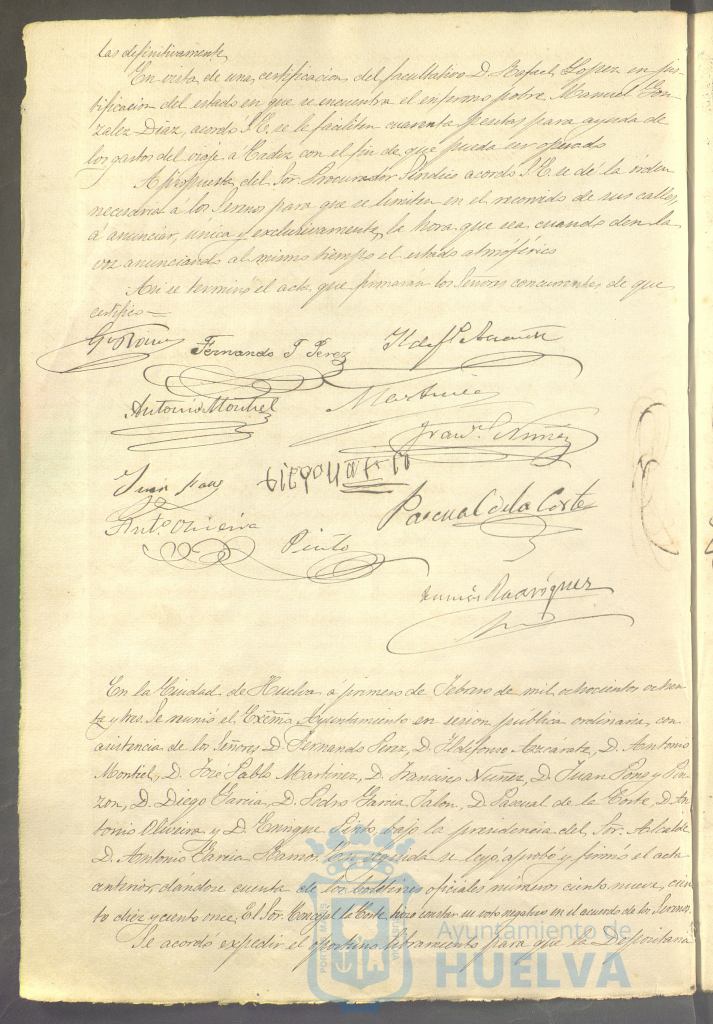 las definitivamente
En vista de una certificacion del facultativo D. Rafael Lopez en jus-
tificacion del estado en que se encuentra el enfermo pobre Manuel Gon-
zalez Diaz, acordó S.E. se le faciliten cuarenta pesetas para ayuda de
los gastos del viaje á Cadiz con el fin de que pueda ser operado
A propuesta del Sor. Procurador Sindico acordó S.E. se dé la orden
necesaria á los Serenos para que se limiten en el recorrido de sus calles,
á anunciar, unica y exclusivamente, la hora que sea cuando den la
voz anunciando al mismo tiempo el estado atmosferico
Asi se terminó el acta que firmarán los Señores concurrentes de que
certifico =
Fernando T Perez
Antonio Montiel Martinez
Franco. Nuñez
Juan Pons
Pascual de la Corte
Anto. Oliveira
Pinto
Rodríguez
En la Ciudad de Huelva á primero de Febrero de mil ochocientos ochen-
ta y tres. Se reunió el Excmo. Ayuntamiento en sesion pública ordinaria, con
asistencia de los Señores D. Fernando Perez, D. Ildefonso Azcárate, D. Antonio
Montiel, D. José Pablo Martinez, D. Francisco Nuñez, D. Juan Pons y Pin-
zon, D. Diego Garcia, D. Pedro Garcia Jalon, D. Pascual de la Corte, D. An-
tonio Oliveira y D. Enrique Pinto, bajo la presidencia del Sor. Alcalde
D. Antonio Garcia Ramos. En seguida se leyó, aprobó y firmó el acta
anterior, dándose cuenta de los boletines oficiales números ciento nueve, cien-
to diez y ciento once. El Sor. Concejal la Corte hizo constar su voto negativo en el acuerdo de los Serenos.
Se acordó expedir el oportuno libramiento para que la Depositaria
Ayuntamiento de
HUELVA